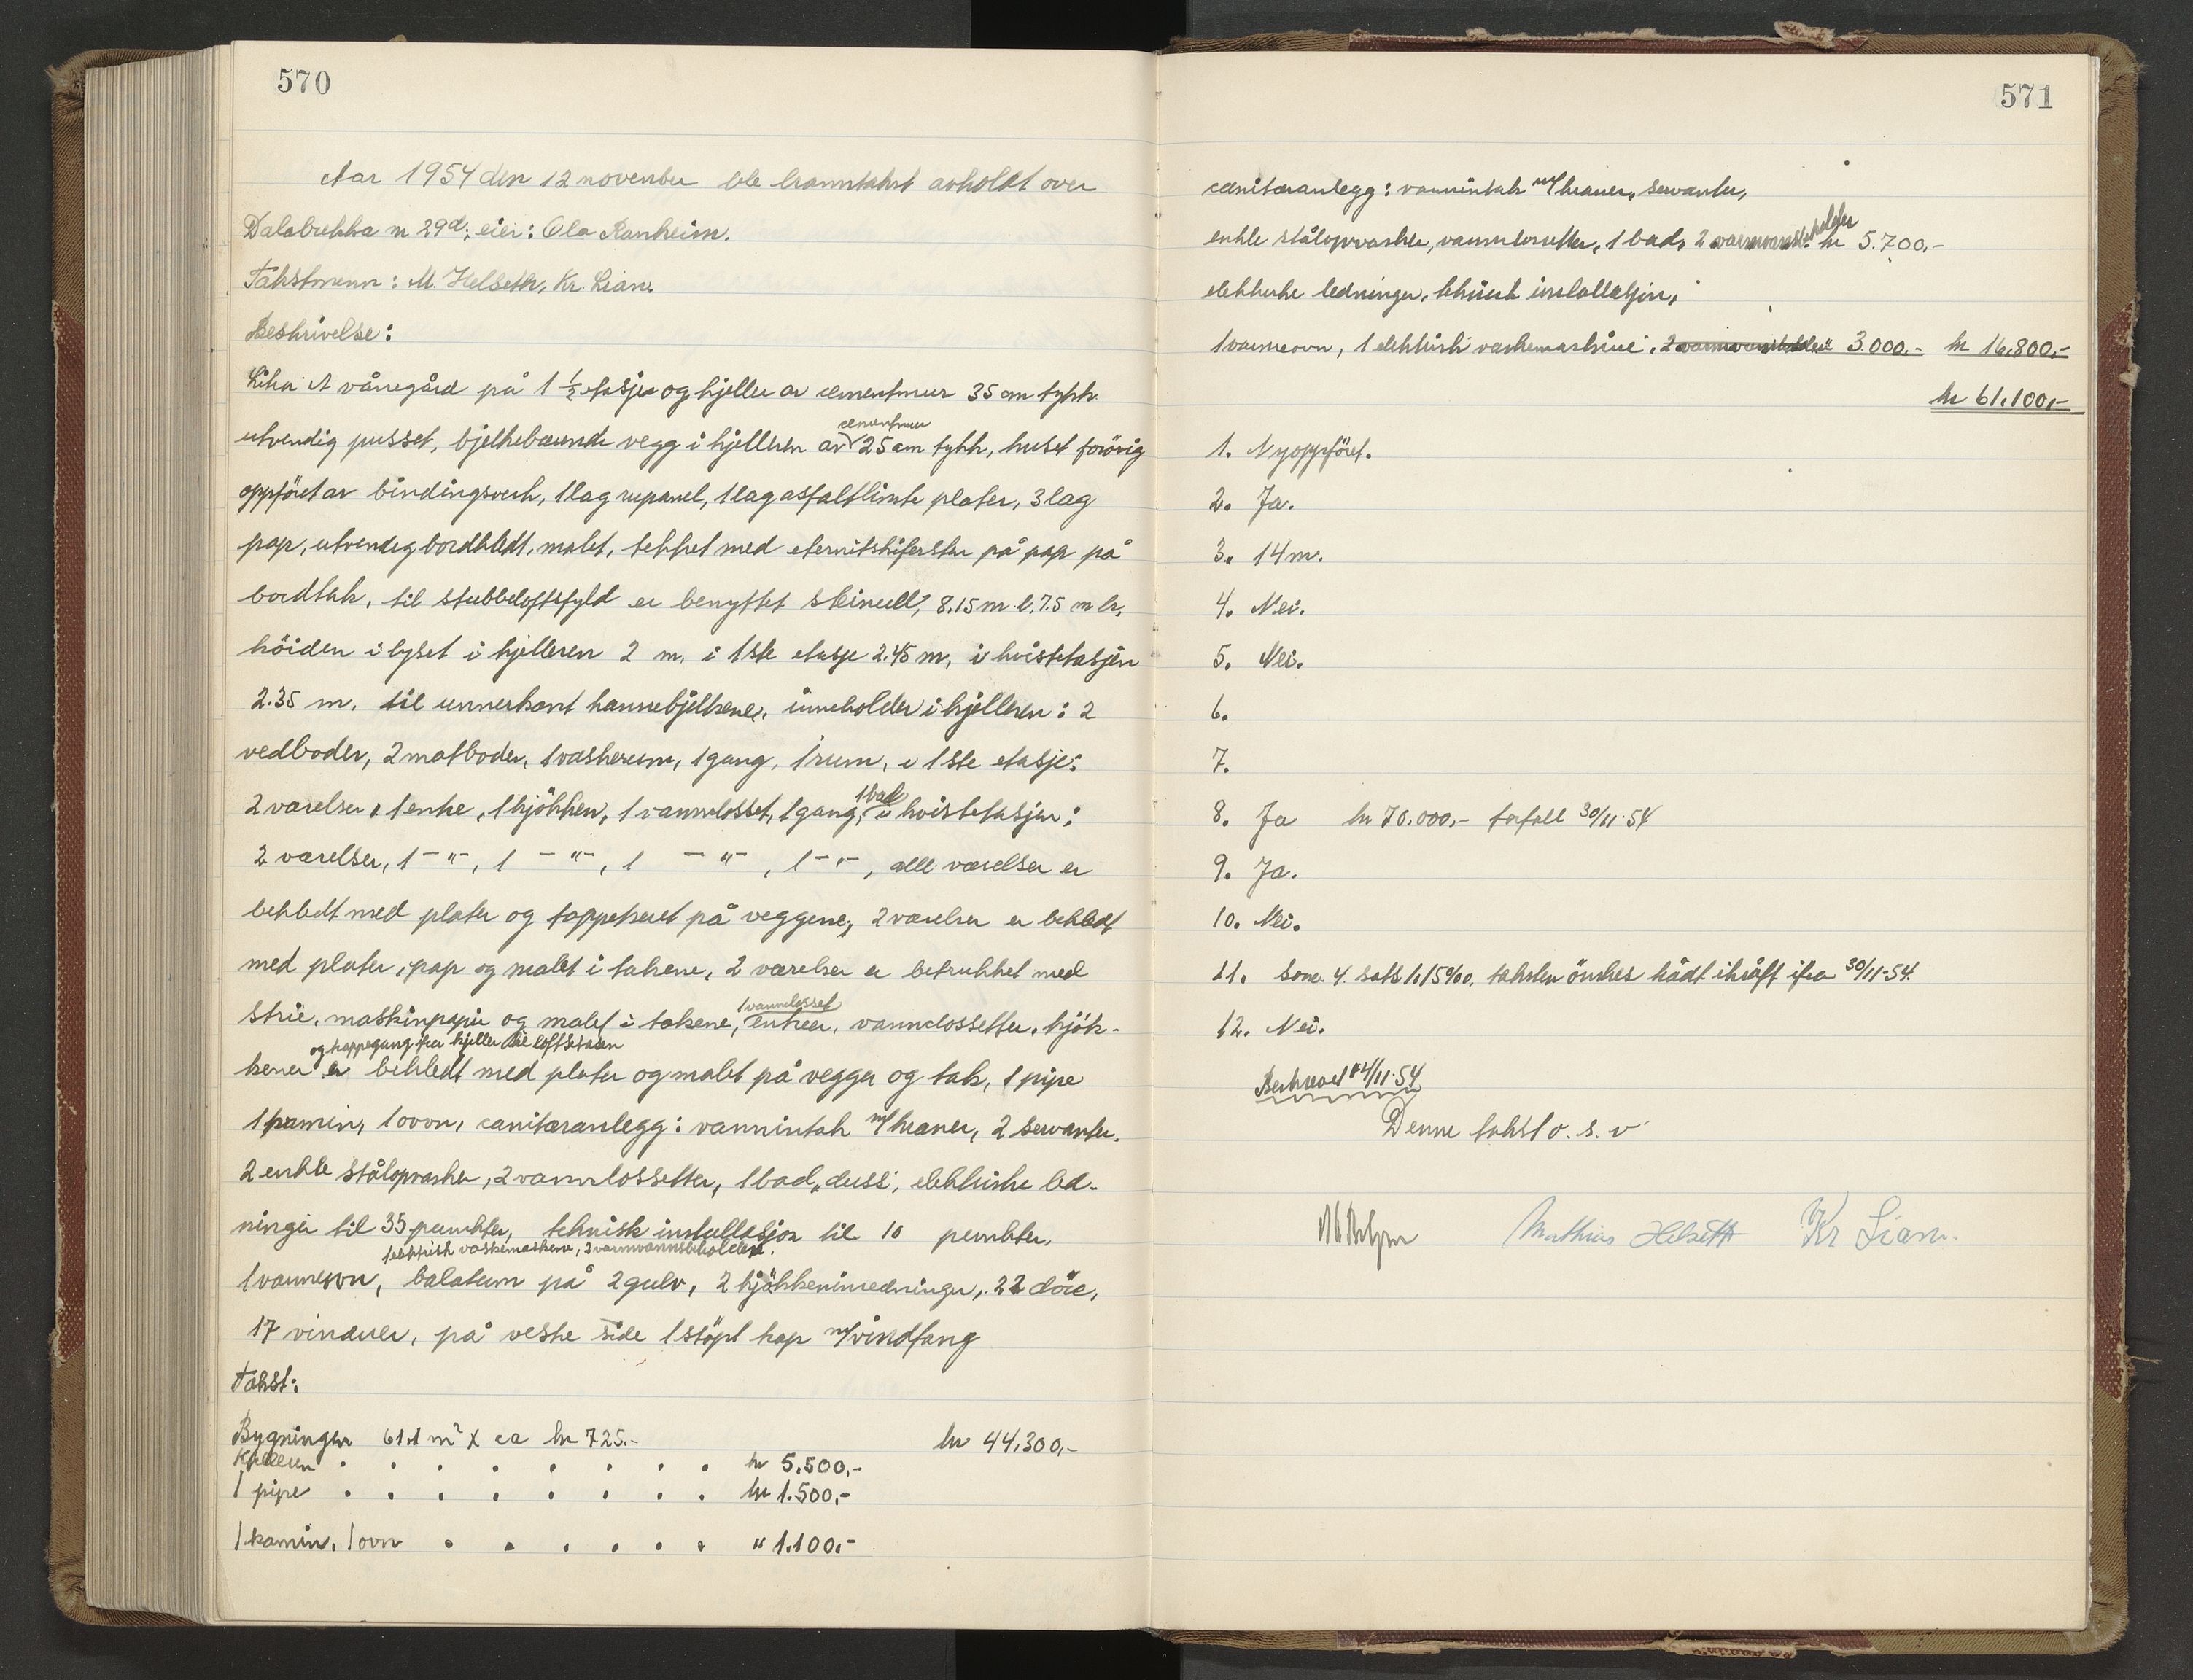 570
Aar 1954 den 12 november ble branntakst avholdt over
Dalabrekka n 29d; eier: Ola Ranheim.
Takstmenn: M. Helseth, Kr. Lian.
Beskrivelse:
Litra A vånegård på 1 1/2 etasje og kjeller av cementmur 35 cm tykk
utvendig pusset, bjelkebærende vegg i kjelleren av cementmur 25 cm tykk, huset forövrig
oppföret av bindingsverk, 1 lag rupanel, 1 lag asfaltlimte plater, 3 lag
pap, utvendig bordkledt, malet, tekket med eternitskifersten på pap på
bordtak, til stubbeloftsfyld er benyttet steinull, 8.15 m l. 7.5 m br.
höiden i lyset i kjelleren 2 m. i 1ste etasje 2.45 m, i kvistetasjen
2.35 m. til unnerkant hannebjelkene, inneholder i kjelleren: 2
vedboder, 2 matboder, 1 vaskerum, 1 gang, 1 rum, i 1ste etasje:
2 værelser, 1 entre, 1 kjökken, 1 vannclosset, 1 gang, 1 bad i kvistetasjen:
2 værelser, 1 -"-, 1 -"-, 1 -"-, 1 -"-, alle værelser er
bekledt med plater og tappetseret på veggene, 2 værelser er bekledt
med plater, pap og malet i takene, 2 værelser er betrukket med
strie, maskinpapir og malet i takene, 1 vannclosset entreer, vannclossetter, kjök-
kener og trappegang fra kjeller til loftsetasen er bekledt med plater og malet på vegger og tak, 1 pipe
1 kamin, 1 ovn, sanitæranlegg: vanninntak m/kraner, 2 servanter.
2 enkle stålopvasker, 2 vannclossetter, 1 bad, dusj, elektriske led-
ninger til 35 punkter, teknisk installasjon til 10 punkter,
1 elektrisk vaskemaskine, 2 varmvannsbeholdere.
1 varmeovn, balatum på 2 gulv, 2 kjökkeninredninger, 22 döre,
17 vinduer, på vestre side 1 stöpt trap m/vindfang
Takst:
Bygningen 61.1 m² x ca kr 725.- kr 44.300,-
Kjelleren . . . . . . . . kr 5.500,-
1 pipe . . . . . . . . kr 1.500,-
1 kamin, 1 ovn . . . . . . " 1.100,-
571
sanitæranlegg: vanninntak m/kraner, servanter,
enkle stålopvasker, vannclosetter, 1 bad, 2 varmvannsbeholder kr 5.700,-
elektriske ledninger, teknisk installasjon,
1 varmeovn, 1 elektrisk vaskemaskine, 2 varmvannsbeholdere 3.000.- kr 16.800,-
kr 61.100,-
1. Nyoppföret.
2. Ja.
3. 14 m.
4. Nei.
5. Nei.
6.
7.
8. Ja kr 70.000,- forfall 30/11-54
9. Ja.
10. Nei.
11. Sone. 4. sats 1.15‰, taksten önskes trådt i kraft ifra 30/11-54.
12. Nei.
Beskrevet /11-54
Denne takst o. s. v
Mathias Helseth Kr Lian.